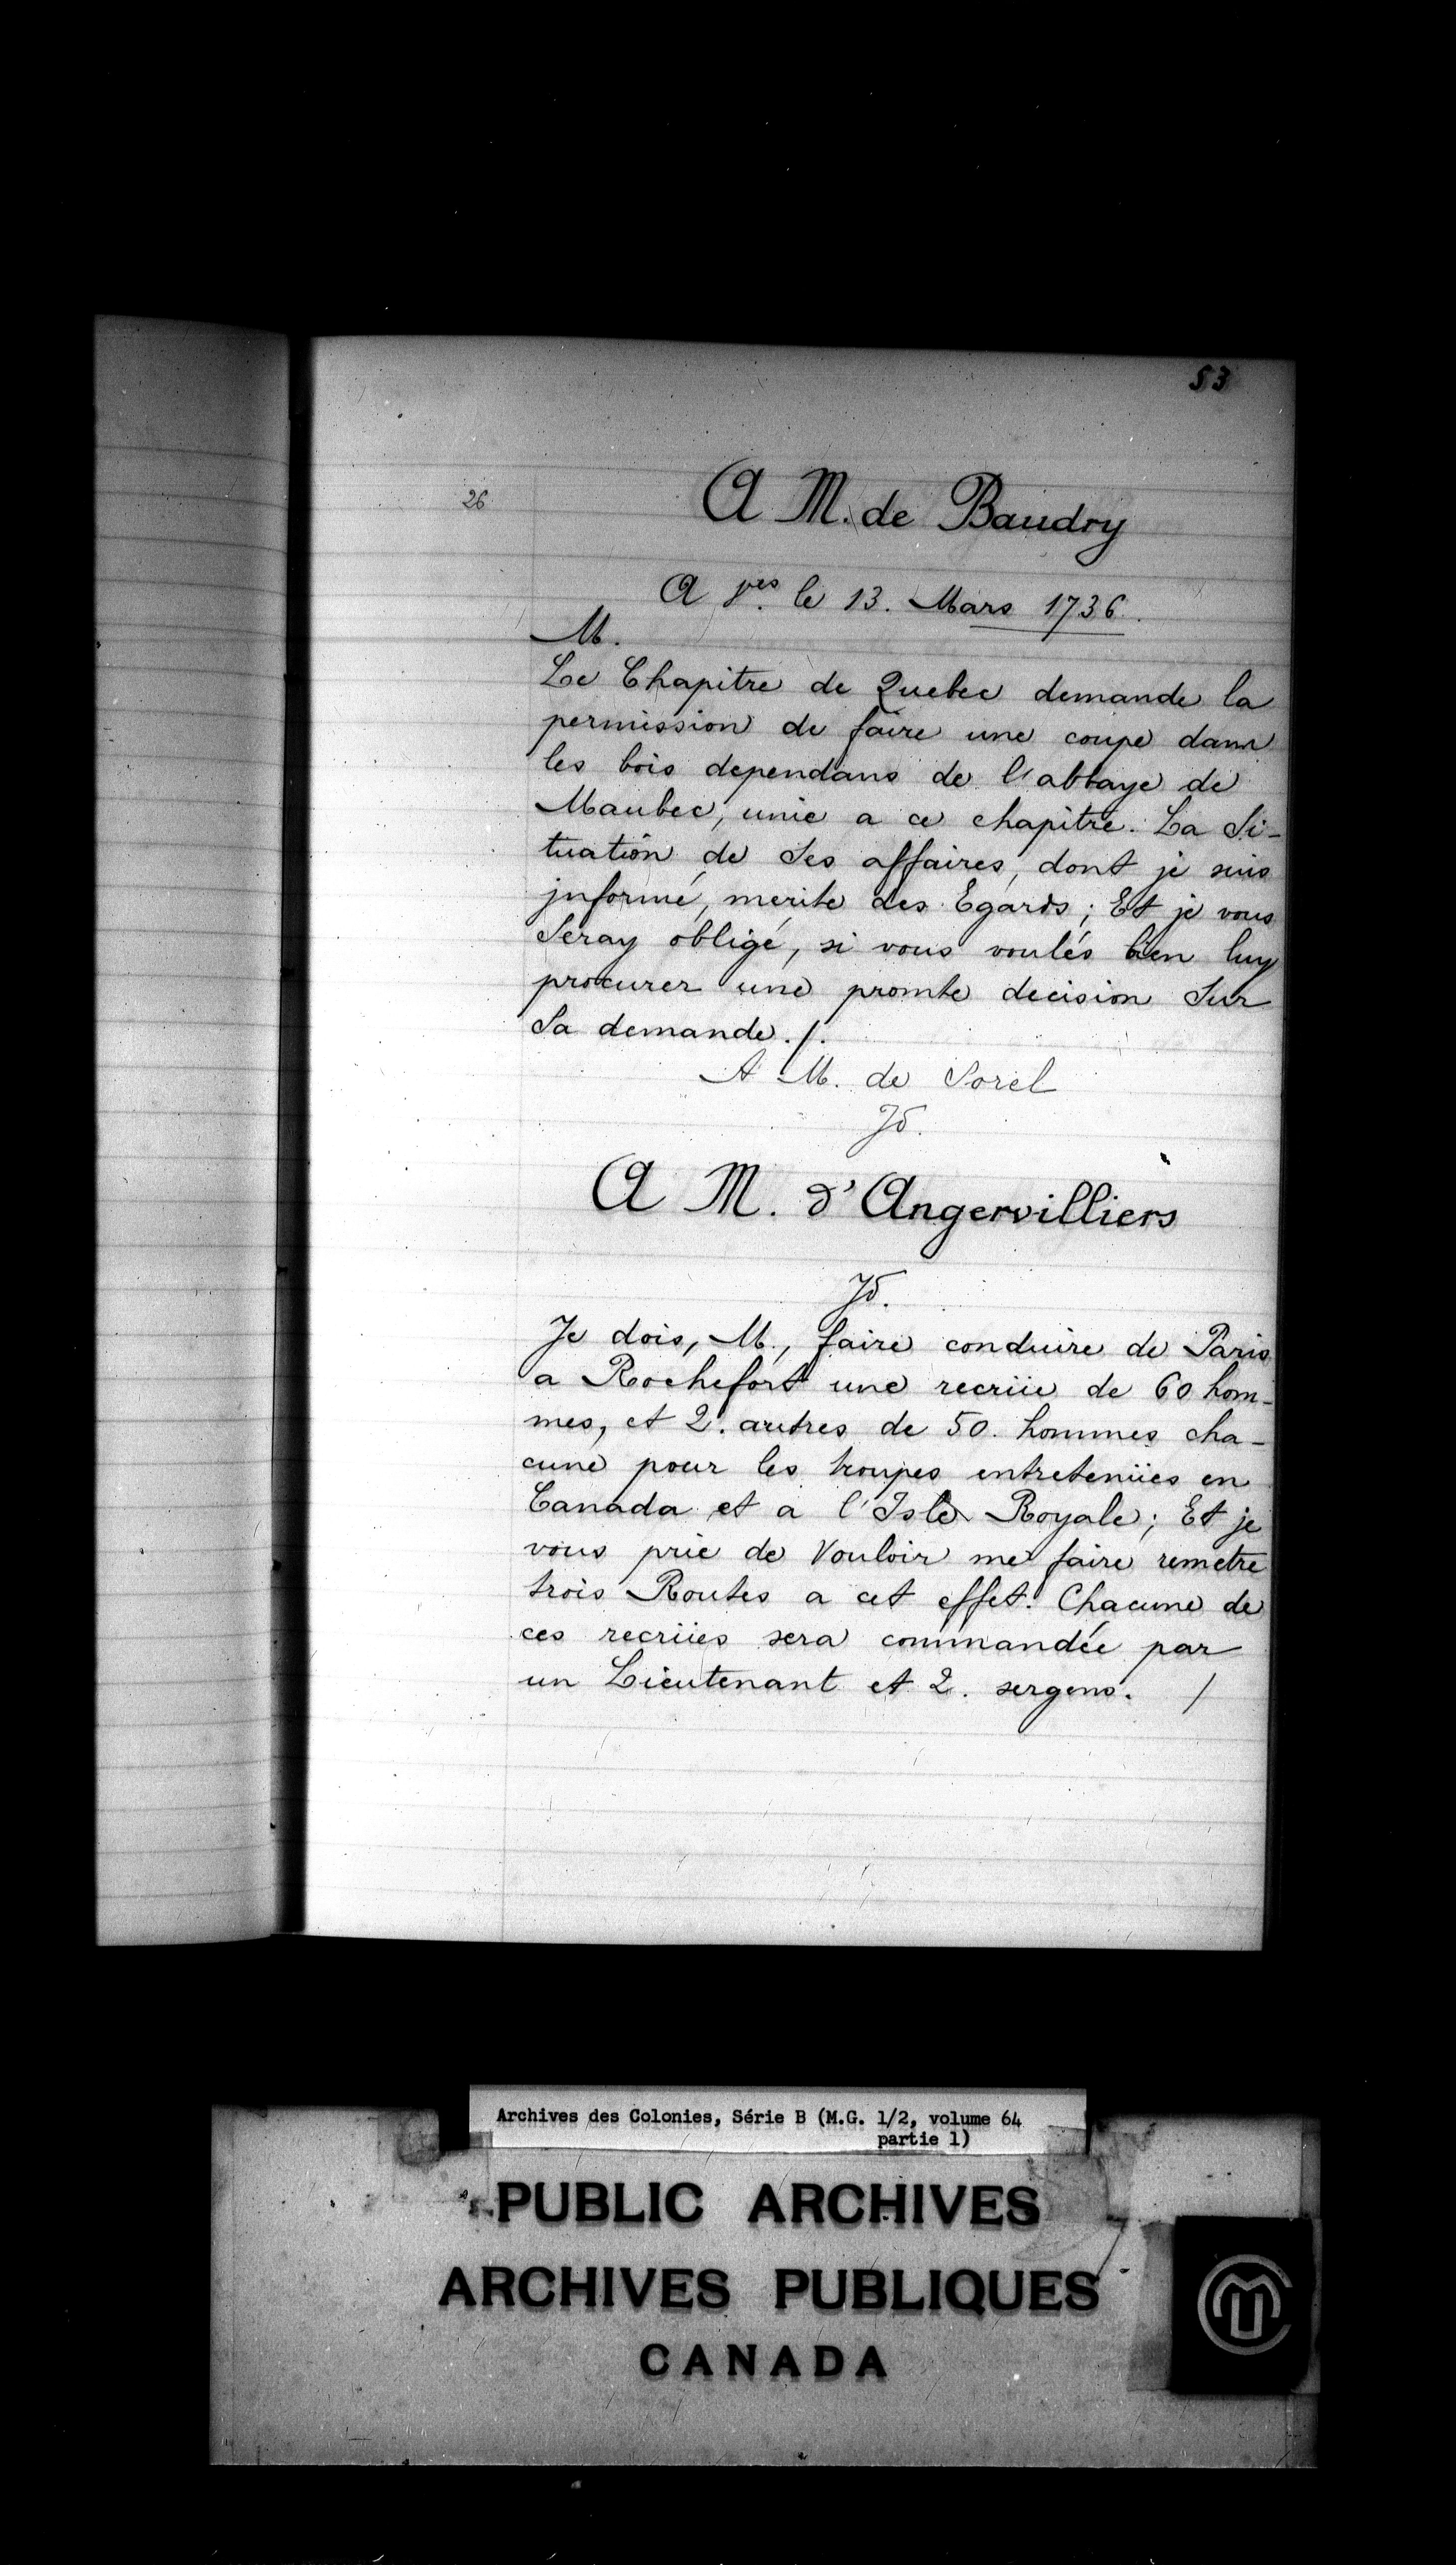 53
26
A M. de Baudry
A Ves. le 13. Mars 1736.
M.
Le Chapitre de Quebec demande la
permission de faire une coupe dans
les bois dependans de l'abbaye de
Maubec, unie a ce chapitre. La Si-
tuation de Ses affaires, dont je suis
jnformé, merite des Egards; Et je vous
Seray obligé, si vous voulés bien luy
procurer une promte decision Sur
Sa demande./.
A M. de Sorel
Jd.
A M. d'Angervilliers
Jd.
Je dois, M., faire conduire de Paris
a Rochefort une recrüe de 60 hom-
mes, et 2. autres de 50. hommes cha-
cune pour les troupes entretenües en
Canada et a l'Isle Royale; Et je
vous prie de Vouloir me faire remetre
trois Routes a cet effet. Chacune de
ces recrües sera commandée par
un Lieutenant et 2. sergens. /
Archives des Colonies, Série B (M.G. 1/2, volume 64
partie 1)
PUBLIC ARCHIVES
ARCHIVES PUBLIQUES
CANADA